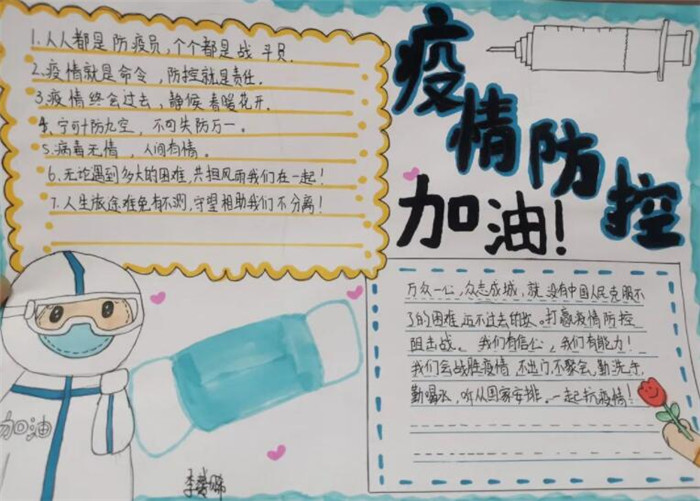 疫情防控
加油!
1.人人都是防疫员,个个都是战斗员.
2.疫情就是命令,防控就是责任.
3.疫情终会过去,静候春暖花开.
4、宁可十防九空,不可失防万一。
5.病毒无情,人间有情。
6.无论遇到多大的困难,共担风雨我们在一起!
7.人生旅途难免有不测,守望相助我们不分离!
万众一心,众志成城,就没有中国人民克服不
了的困难,迈不过去的坎。打赢疫情防控
阻击战。我们有信心,我们有能力!
我们会战胜疫情,不出门,不聚会,勤洗手,
勤喝水,听从国家安排,一起抗疫情!
加油
李